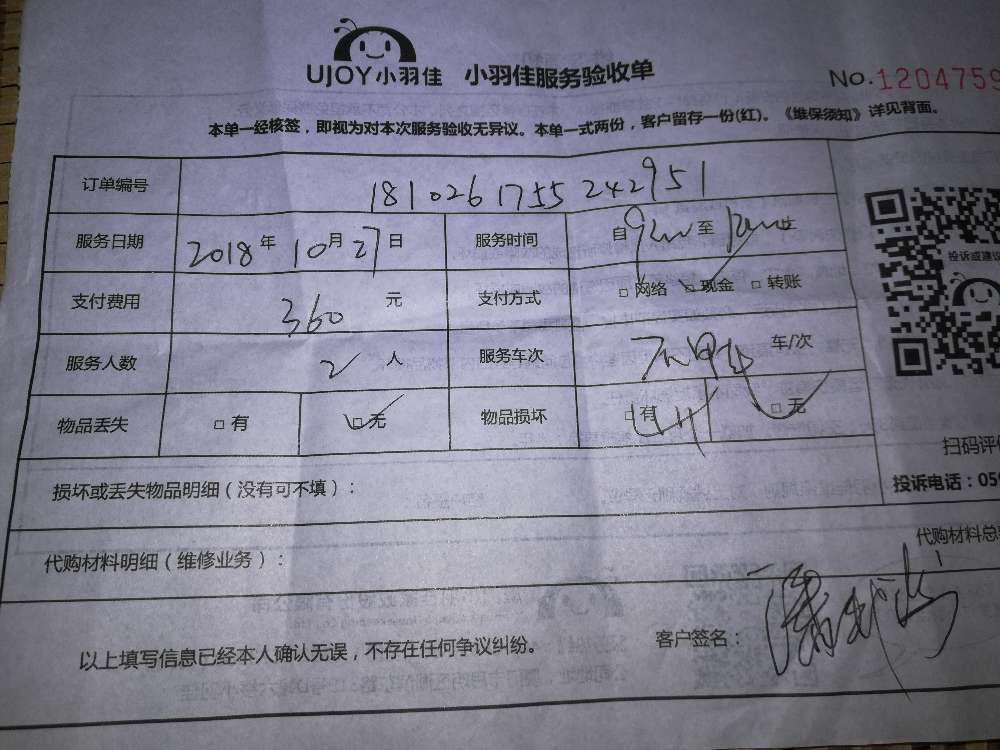 UJOY小羽佳 小羽佳服务验收单 No.1204759
本单一经核签，即视为对本次服务验收无异议。本单一式两份，客户留存一份(红)。《维保须知》详见背面。
订单编号 1810261755242951
服务日期 2018年10月27日 服务时间 自 至
支付费用 360元 支付方式 □网络 □现金 □转账
服务人数 2人 服务车次 车/次
物品丢失 □有 □无 物品损坏 □有 □无
投诉或建议
扫码评
损坏或丢失物品明细（没有可不填）： 投诉电话：05
代购材料明细（维修业务）： 代购材料总
以上填写信息已经本人确认无误，不存在任何争议纠纷。 客户签名：